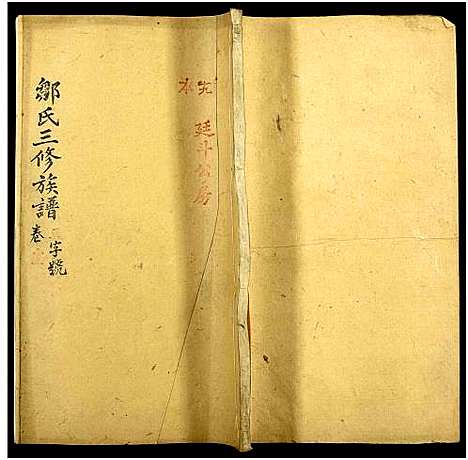 鄒氏三修族譜
卷
字號
廷斗公房